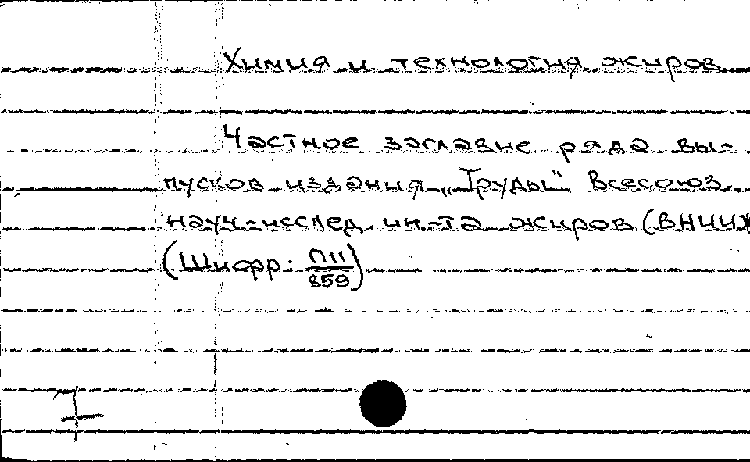 Химия и технология жиров
Частное заглавие ряда вы-
пусков издания „Труды" Всесоюз.
науч-исслед. ин-та жиров (ВНИИЖ
(Шифр: П11/859)